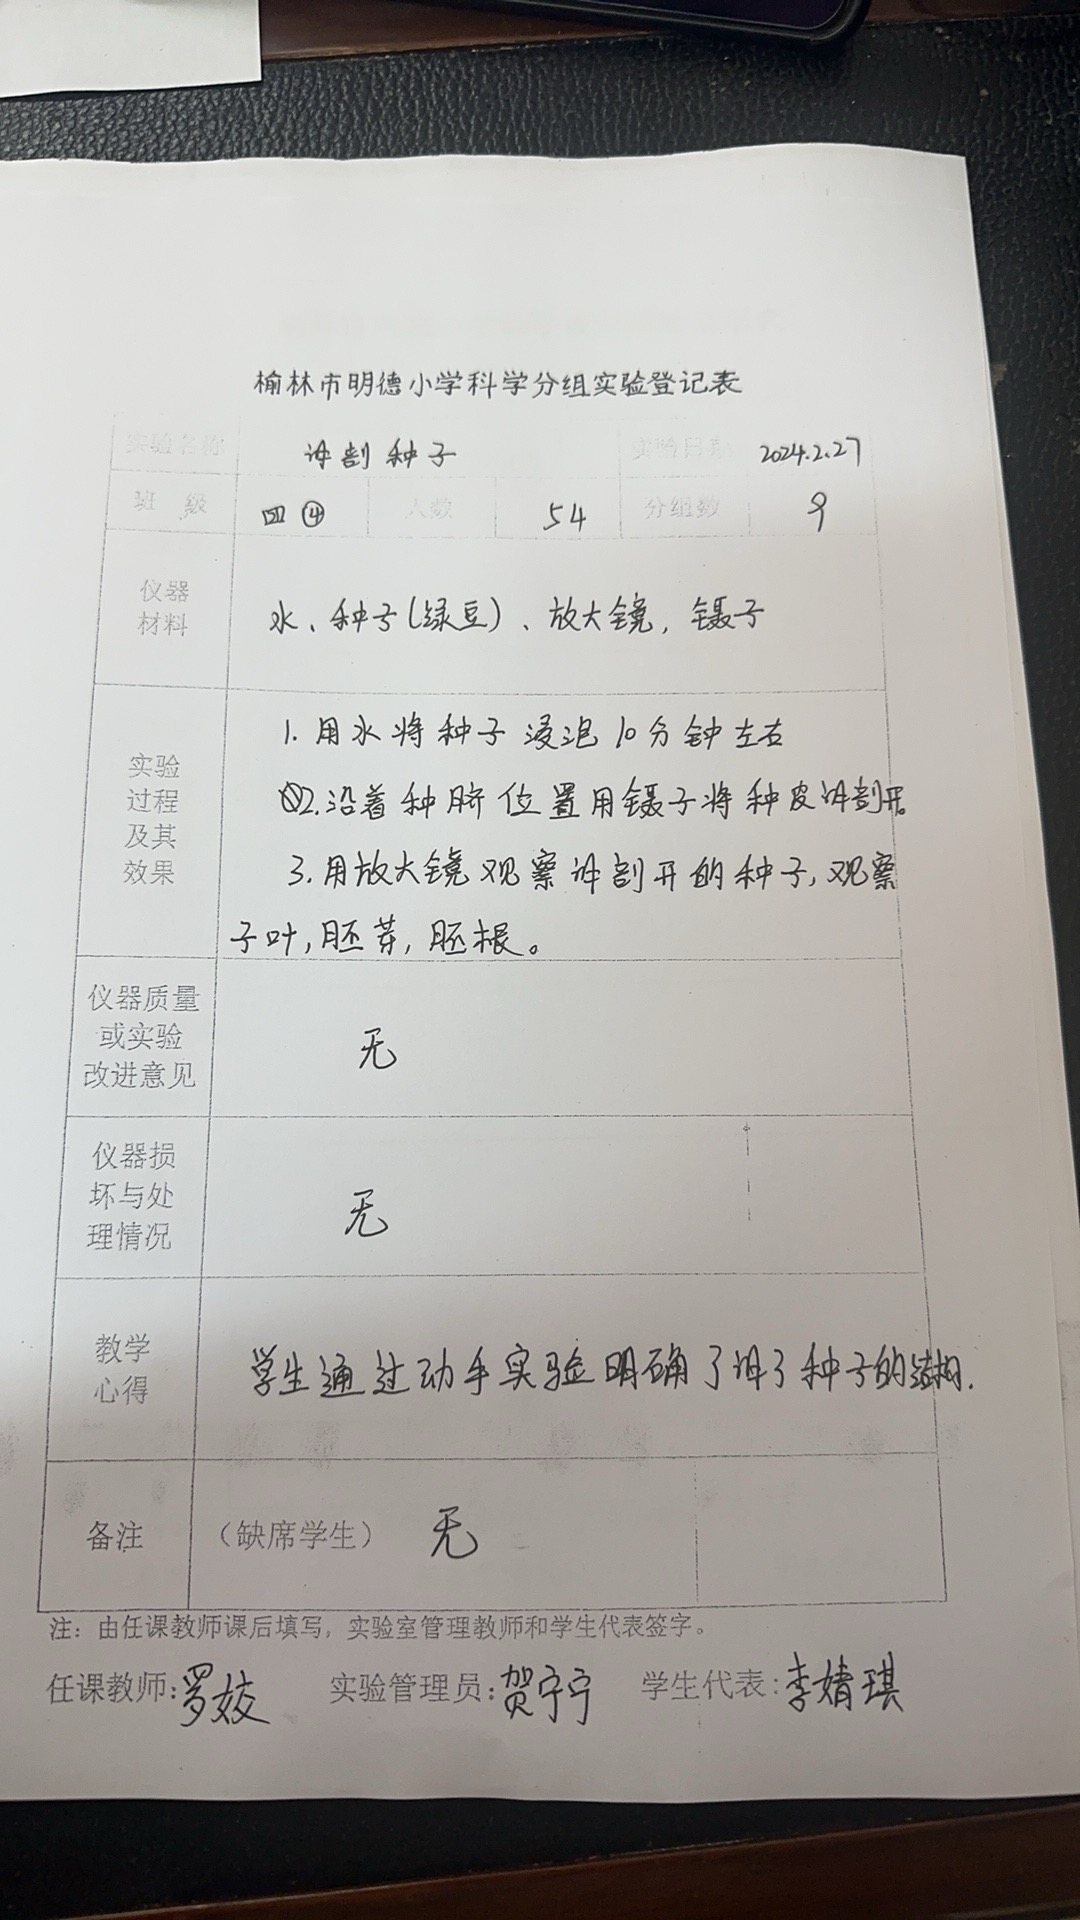 榆林市明德小学科学分组实验登记表
实验名称 讲剖种子 实验日期 2024.2.27
班 级 四④ 人数 54 分组数 9
仪器
材料
水、种子(绿豆)、放大镜, 镊子
实验
过程
及其
效果
1.用水将种子浸泡10分钟左右
2.沿着种脐位置用镊子将种皮讲剖开。
3.用放大镜观察讲剖开的种子,观察
子叶,胚芽,胚根。
仪器质量
或实验
改进意见
无
仪器损
坏与处
理情况
无
教学
心得
学生通过动手实验明确了讲了种子的结构.
备注
(缺席学生) 无
注:由任课教师课后填写,实验室管理教师和学生代表签字。
任课教师:罗姣 实验管理员:贺宁宁 学生代表:李婧琪